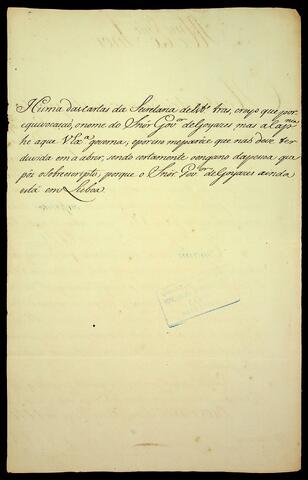 Huma das cartas da Secretaria de Est.º tras, creyo que por
equivocação, o nome do Snõr Gov.ºr de Goyazes mas a Cap.nia
he a que V Ex.ª governa, e por isso me parece que nao deve ter
duvida em a abrir; sendo certamente o engano da pessoa que
pôs o sobrescripto; porque o Snõr Gov.ºr de Goyazes ainda
está em Lisboa.